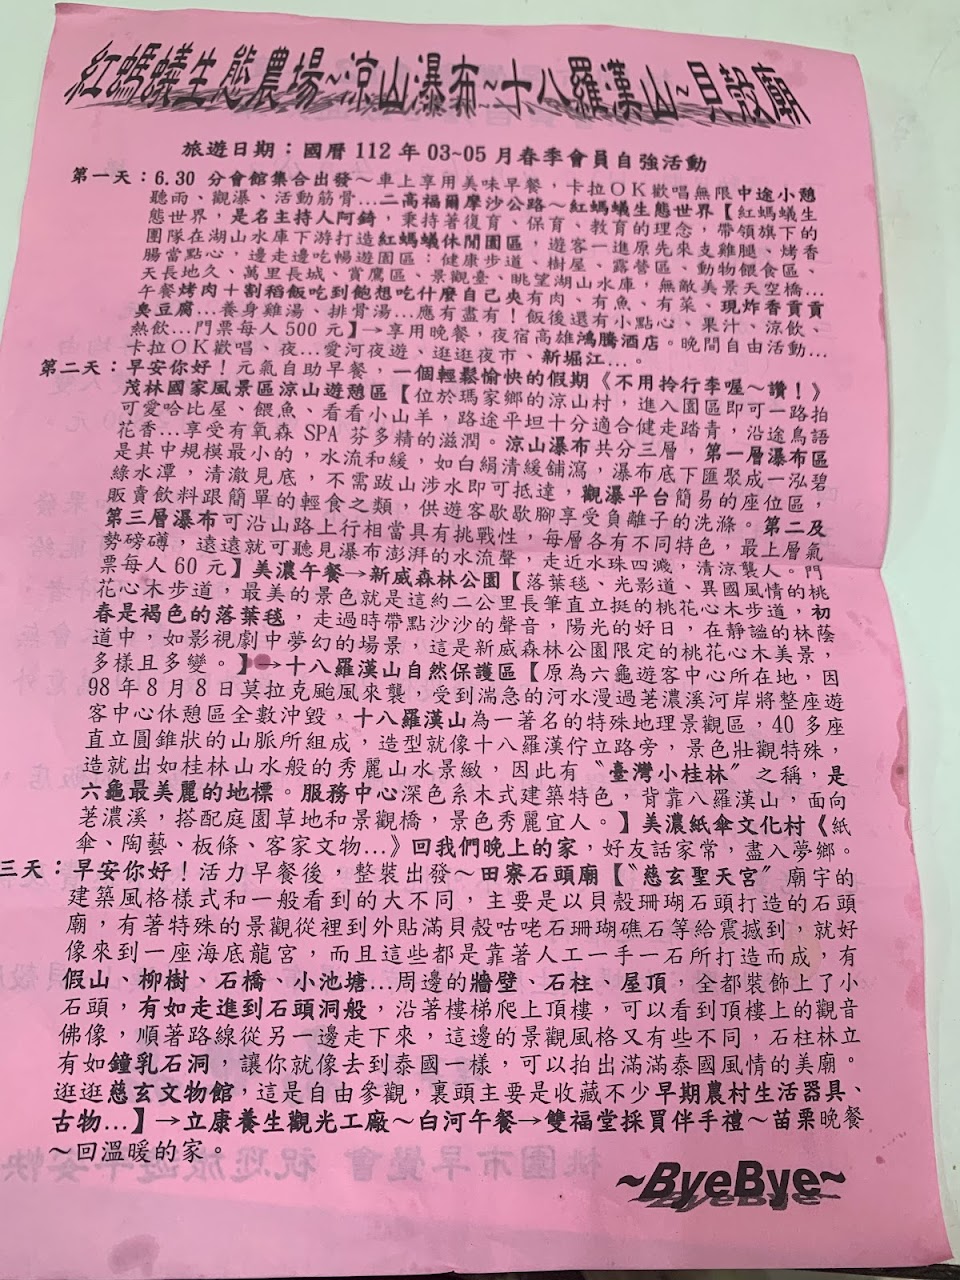 紅螞蟻生態農場~涼山瀑布~十八羅漢山~貝殼廟
旅遊日期：國曆112年03~05月春季會員自強活動
第一天：6.30 分會館集合出發～車上享用美味早餐，卡拉OK歡唱無限中途小憩
聽雨、觀瀑、活動筋骨...二高福爾摩沙公路～紅螞蟻生態世界【紅螞蟻生
態世界，是名主持人阿錡，秉持著復育、保育、教育的理念，帶領旗下的
團隊在湖山水庫下游打造紅螞蟻休閒園區，遊客一進原先來支雞腿、烤香
腸當點心，邊走邊吃暢遊園區：健康步道、樹屋、露營區、動物餵食區、
天長地久、萬里長城、賞鷹區、景觀臺、眺望湖山水庫，無敵美景天空橋...
午餐烤肉＋割稻飯吃到飽想吃什麼自己夾有肉、有魚、有菜、現炸香貢貢
臭豆腐...養身雞湯、排骨湯...應有盡有！飯後還有小點心、果汁、涼飲、
熱飲...門票每人500元】→享用晚餐，夜宿高雄鴻騰酒店。晚間自由活動...
卡拉OK歡唱、夜...愛河夜遊、逛逛夜市、新堀江...。
第二天：早安你好！元氣自助早餐，一個輕鬆愉快的假期《不用拎行李喔～讚！》
茂林國家風景區涼山遊憩區【位於瑪家鄉的涼山村，進入園區即可一路拍
可愛哈比屋、餵魚、看看小山羊，路途平坦十分適合健走踏青，沿途鳥語
花香...享受有氧森SPA芬多精的滋潤。涼山瀑布共分三層，第一層瀑布區
是其中規模最小的，水流和緩，如白絹清緩鋪瀉，瀑布底下匯聚成一泓碧
綠水潭，清澈見底，不需跋山涉水即可抵達，觀瀑平台簡易的座位區，
販賣飲料跟簡單的輕食之類，供遊客歇歇腳享受負離子的洗滌。第二及
第三層瀑布可沿山路上行相當具有挑戰性，每層各有不同特色，最上層氣
勢磅礡，遠遠就可聽見瀑布澎湃的水流聲，走近水珠四濺，清涼襲人。門
票每人60元】美濃午餐→新威森林公園【落葉毯、光影道、異國風情的桃
花心木步道，最美的景色就是這約二公里長筆直立挺的桃花心木步道，初
春是褐色的落葉毯，走過時帶點沙沙的聲音，陽光的好日，在靜謐的林蔭
道中，如影視劇中夢幻的場景，這是新威森林公園限定的桃花心木美景，
多樣且多變。】→十八羅漢山自然保護區【原為六龜遊客中心所在地，因
98年8月8日莫拉克颱風來襲，受到湍急的河水漫過荖濃溪河岸將整座遊
客中心休憩區全數沖毀，十八羅漢山為一著名的特殊地理景觀區，40多座
直立圓錐狀的山脈所組成，造型就像十八羅漢佇立路旁，景色壯觀特殊，
造就出如桂林山水般的秀麗山水景緻，因此有〝臺灣小桂林〞之稱，是
六龜最美麗的地標。服務中心深色系木式建築特色，背靠八羅漢山，面向
荖濃溪，搭配庭園草地和景觀橋，景色秀麗宜人。】美濃紙傘文化村《紙
傘、陶藝、板條、客家文物...》回我們晚上的家，好友話家常，盡入夢鄉。
三天：早安你好！活力早餐後，整裝出發～田寮石頭廟【〝慈玄聖天宮〞廟宇的
建築風格樣式和一般看到的大不同，主要是以貝殼珊瑚石頭打造的石頭
廟，有著特殊的景觀從裡到外貼滿貝殼咕咾石珊瑚礁石等給震撼到，就好
像來到一座海底龍宮，而且這些都是靠著人工一手一石所打造而成，有
假山、柳樹、石橋、小池塘...周邊的牆壁、石柱、屋頂，全都裝飾上了小
石頭，有如走進到石頭洞般，沿著樓梯爬上頂樓，可以看到頂樓上的觀音
佛像，順著路線從另一邊走下來，這邊的景觀風格又有些不同，石柱林立
有如鐘乳石洞，讓你就像去到泰國一樣，可以拍出滿滿泰國風情的美廟。
逛逛慈玄文物館，這是自由參觀，裏頭主要是收藏不少早期農村生活器具、
古物...】→立康養生觀光工廠～白河午餐→雙福堂採買伴手禮～苗栗晚餐
～回溫暖的家。
~ByeBye~